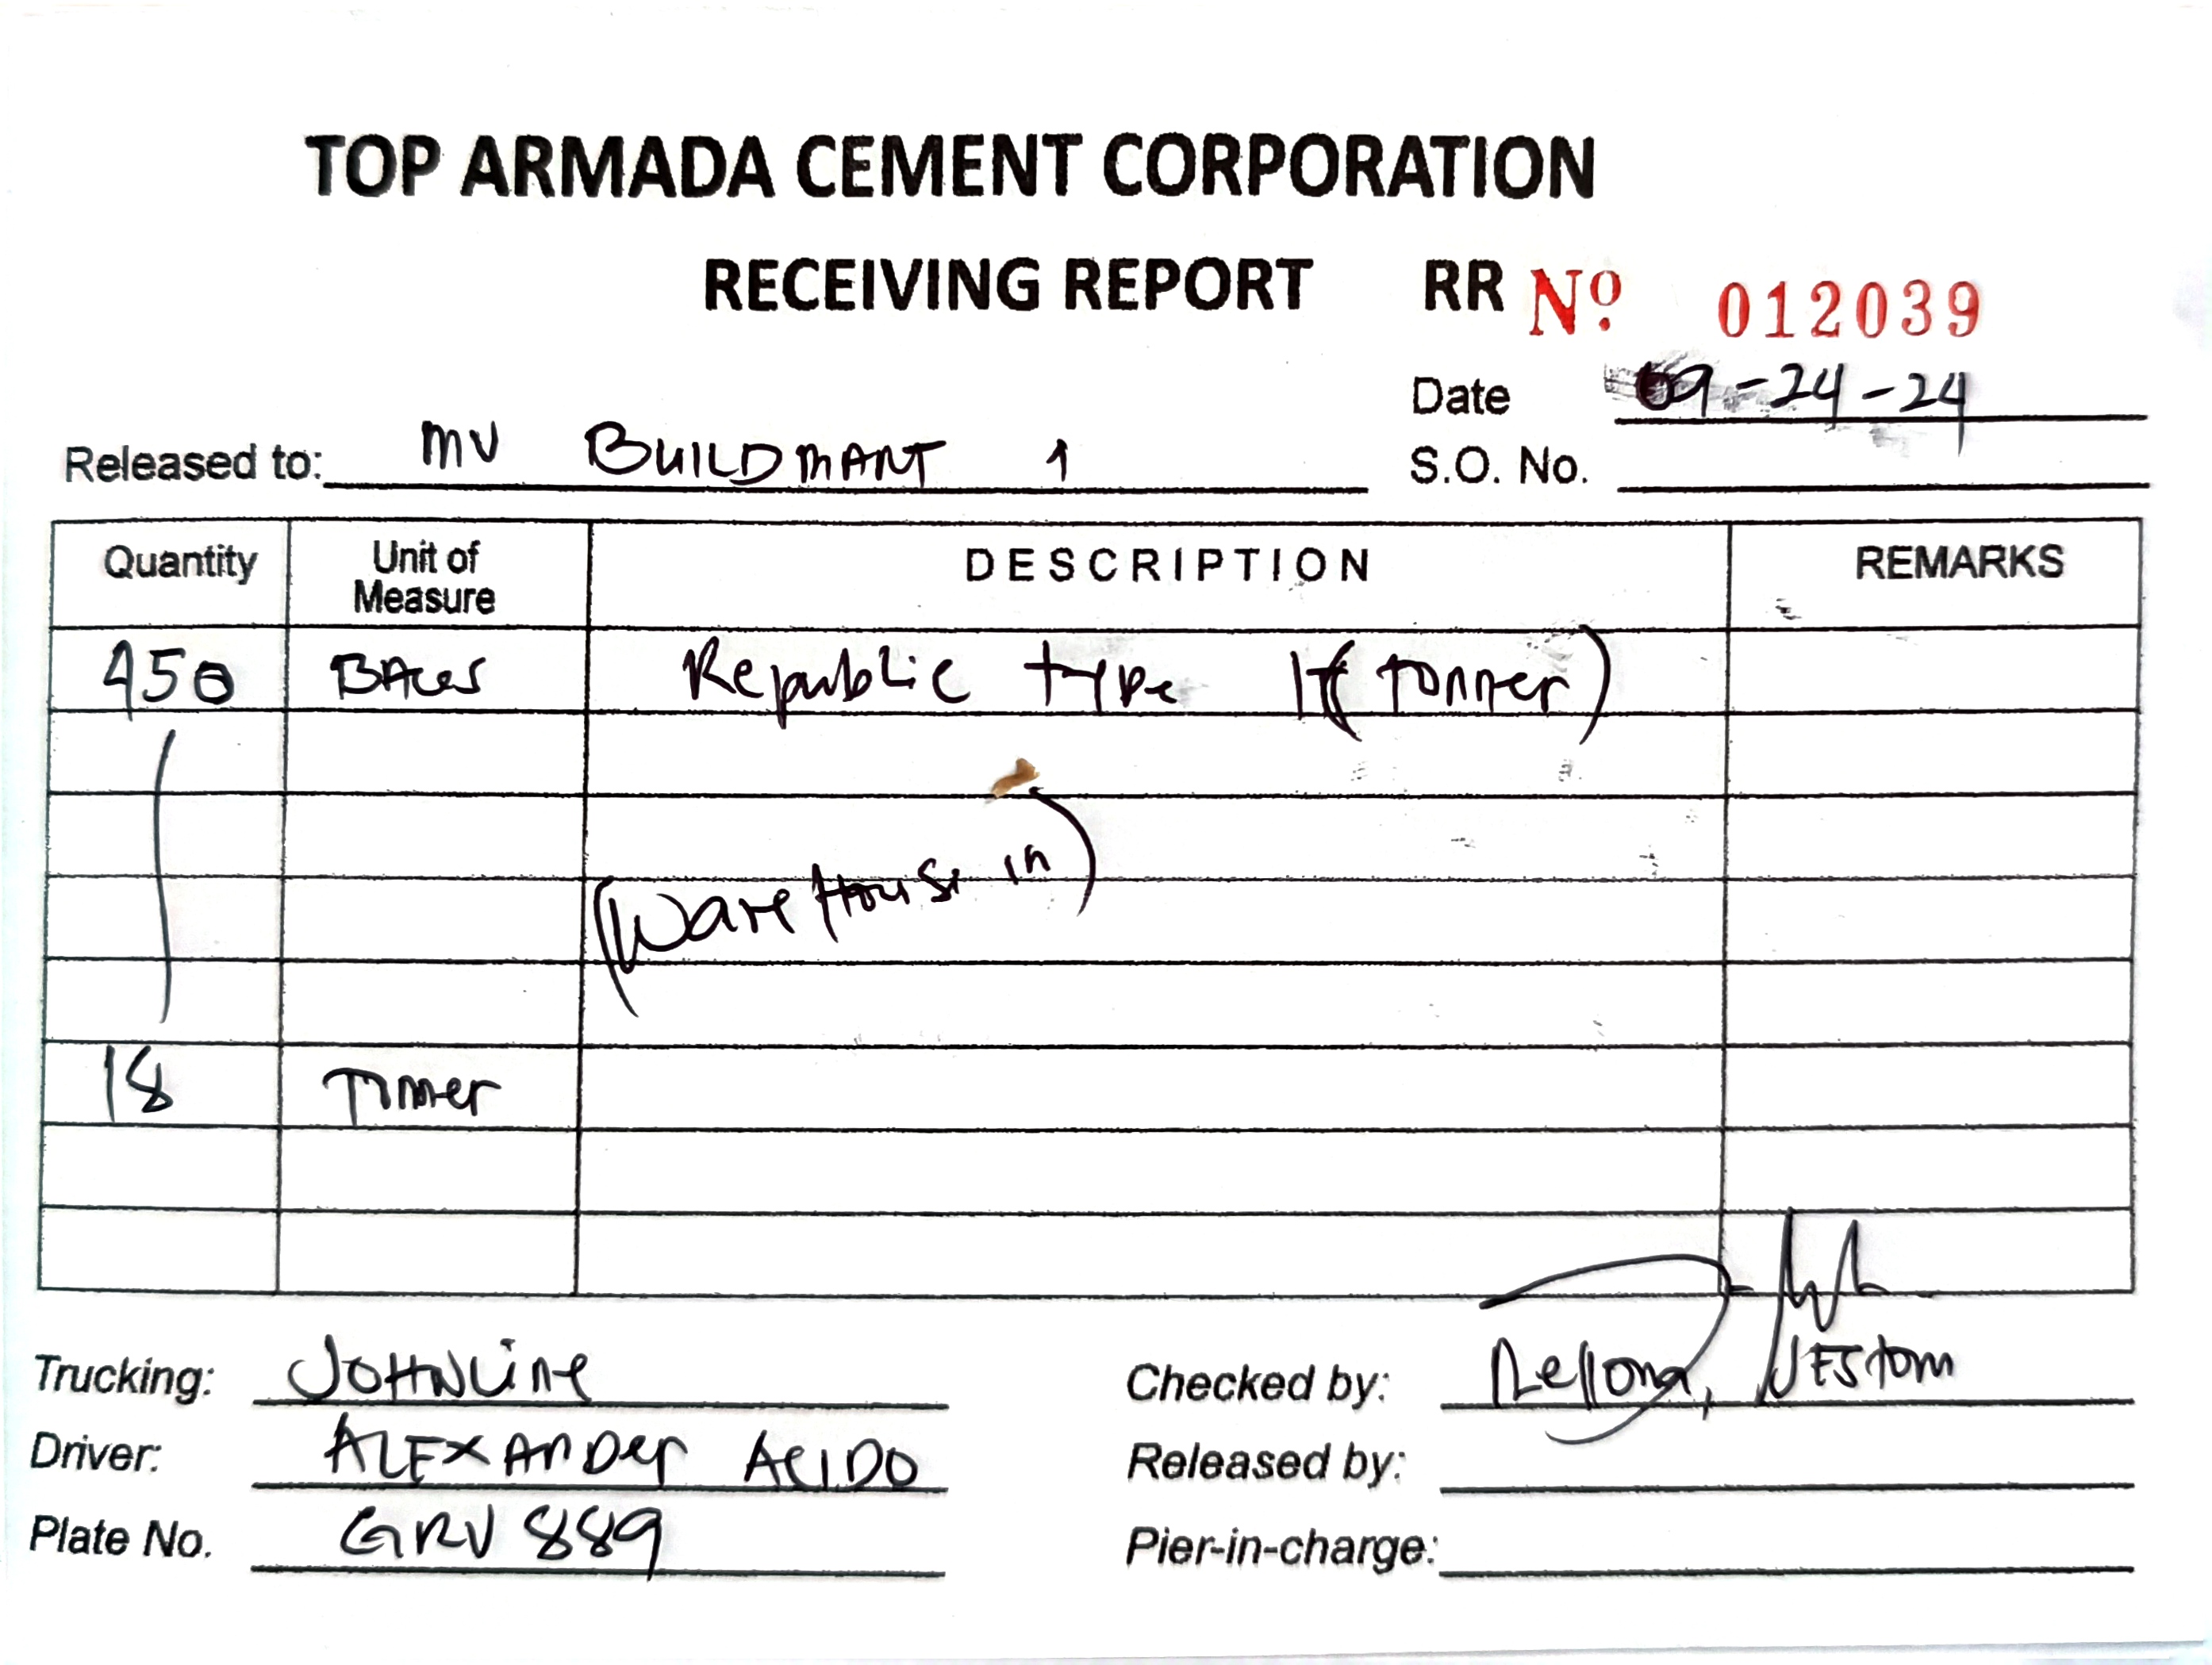 TOP ARMADA CEMENT CORPORATION
RECEIVING REPORT RR Nº 012039
Date 09-24-24
Released to: MV BUILDMANT 1
S.O. No.
Quantity Unit of Measure DESCRIPTION REMARKS
450 BAGS Republic type 1T (Tonner)
(Ware House in)
18 Tonner
Trucking: JOHNLine Checked by: Rellona, JEStom
Driver: ALEXANDer ACIDO Released by:
Plate No. GRV 889 Pier-in-charge: